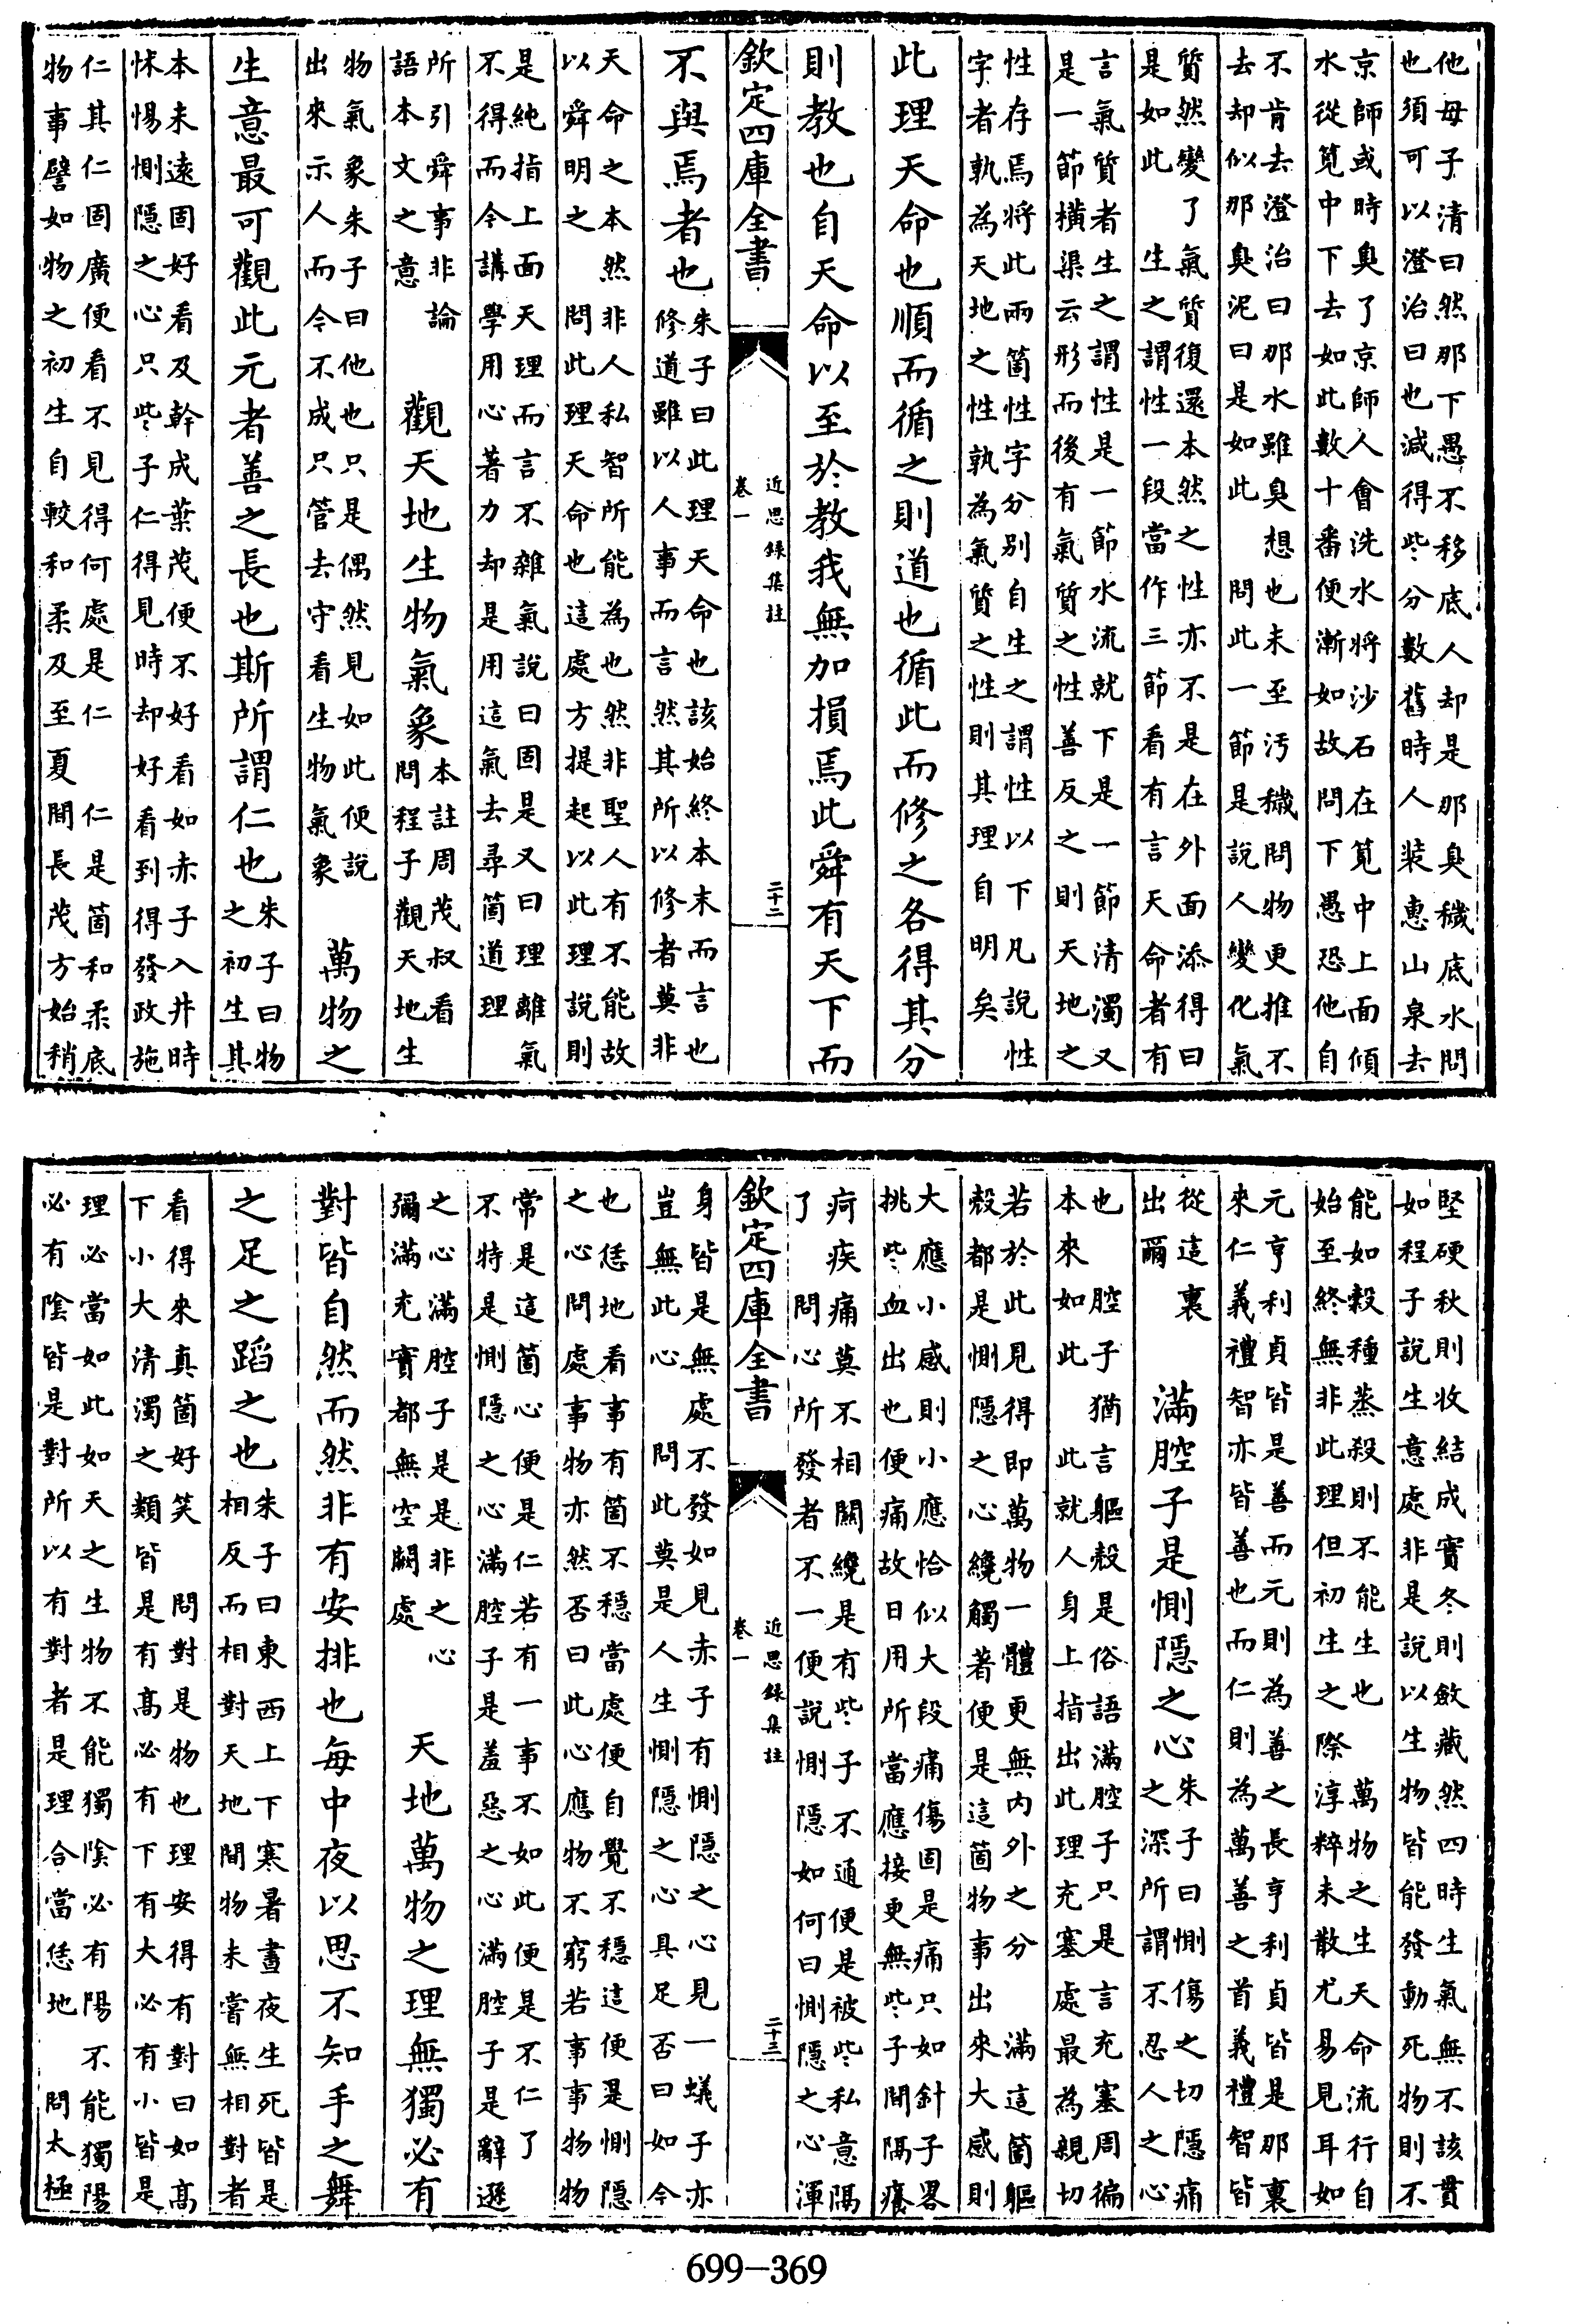 他母子清曰然那下愚不移底人却是那臭穢底水問
也須可以澄治曰也減得些分數舊時人裝惠山泉去
京師或時臭了京師人會洗水將沙石在筧中上面傾
水從筧中下去如此數十番便漸如故問下愚恐他自
不肯去澄治曰那水雖臭想也未至汚穢問物更推不
去却似那臭泥曰是如此問此一節是說人變化氣
質然變了氣質復還本然之性亦不是在外面添得曰
是如此生之謂性一段當作三節看有言天命者有
言氣質者生之謂性是一節水流就下是一節清濁又
是一節橫渠云形而後有氣質之性善反之則天地之
性存焉將此兩箇性字分別自生之謂性以下凡說性
字者孰為天地之性孰為氣質之性則其理自明矣
此理天命也順而循之則道也循此而修之各得其分
則教也自天命以至於教我無加損焉此舜有天下而
欽定四庫全書
近思錄集註
卷一
二十二
不與焉者也
朱子曰此理天命也該始終本末而言也
修道雖以人事而言然其所以修者莫非
天命之本然非人私智所能為也然非聖人有不能故
以舜明之問此理天命也這處方提起以此理說則
是純指上面天理而言不雜氣說曰固是又曰理離氣
不得而今講學用心著力却是用這氣去尋箇道理
所引舜事非論
語本文之意
觀天地生物氣象
本註周茂叔看
問程子觀天地生
物氣象朱子曰他也只是偶然見如此便說
出來示人而今不成只管去守看生物氣象
萬物之
生意最可觀此元者善之長也斯所謂仁也
朱子曰物
之初生其
本未遠固好看及幹成葉茂便不好看如赤子入井時
怵惕惻隱之心只些子仁得見時却好看到得發政施
仁其仁固廣便看不見得何處是仁仁是箇和柔底
物事譬如物之初生自較和柔及至夏間長茂方始稍
堅硬秋則收結成實冬則斂藏然四時生氣無不該貫
如程子說生意處非是說以生物皆能發動死物則不
能如穀種蒸殺則不能生也萬物之生天命流行自
始至終無非此理但初生之際淳粹未散尤易見耳如
元亨利貞皆是善而元則為善之長亨利貞皆是那裏
來仁義禮智亦皆善也而仁則為萬善之首義禮智皆
從這裏
出爾
滿腔子是惻隱之心
朱子曰惻傷之切隱痛
之深所謂不忍人之心
也腔子猶言軀殼是俗語滿腔子只是言充塞周徧
本來如此此就人身上指出此理充塞處最為親切
若於此見得即萬物一體更無內外之分滿這箇軀
殼都是惻隱之心纔觸著便是這箇物事出來大感則
大應小感則小應恰似大段痛傷固是痛只如針子畧
挑些血出也便痛故日用所當應接更無些子間隔癢
疴疾痛莫不相關纔是有些子不通便是被些私意隔
了問心所發者不一便說惻隱如何曰惻隱之心渾
欽定四庫全書
近思錄集註
卷一
二十三
身皆是無處不發如見赤子有惻隱之心見一蟻子亦
豈無此心問此莫是人生惻隱之心具足否曰如今
也恁地看事有箇不穩當處便自覺不穩這便是惻隱
之心問處事物亦然否曰此心應物不窮若事事物物
常是這箇心便是仁若有一事不如此便是不仁了
不特是惻隱之心滿腔子是羞惡之心滿腔子是辭遜
之心滿腔子是是非之心
彌滿充實都無空闕處
天地萬物之理無獨必有
對皆自然而然非有安排也每中夜以思不知手之舞
之足之蹈之也
朱子曰東西上下寒暑晝夜生死皆是
相反而相對天地間物未嘗無相對者
看得來真箇好笑問對是物也理安得有對曰如高
下小大清濁之類皆是有高必有下有大必有小皆是
理必當如此如天之生物不能獨陰必有陽不能獨陽
必有陰皆是對所以有對者是理合當恁地問太極
699—369